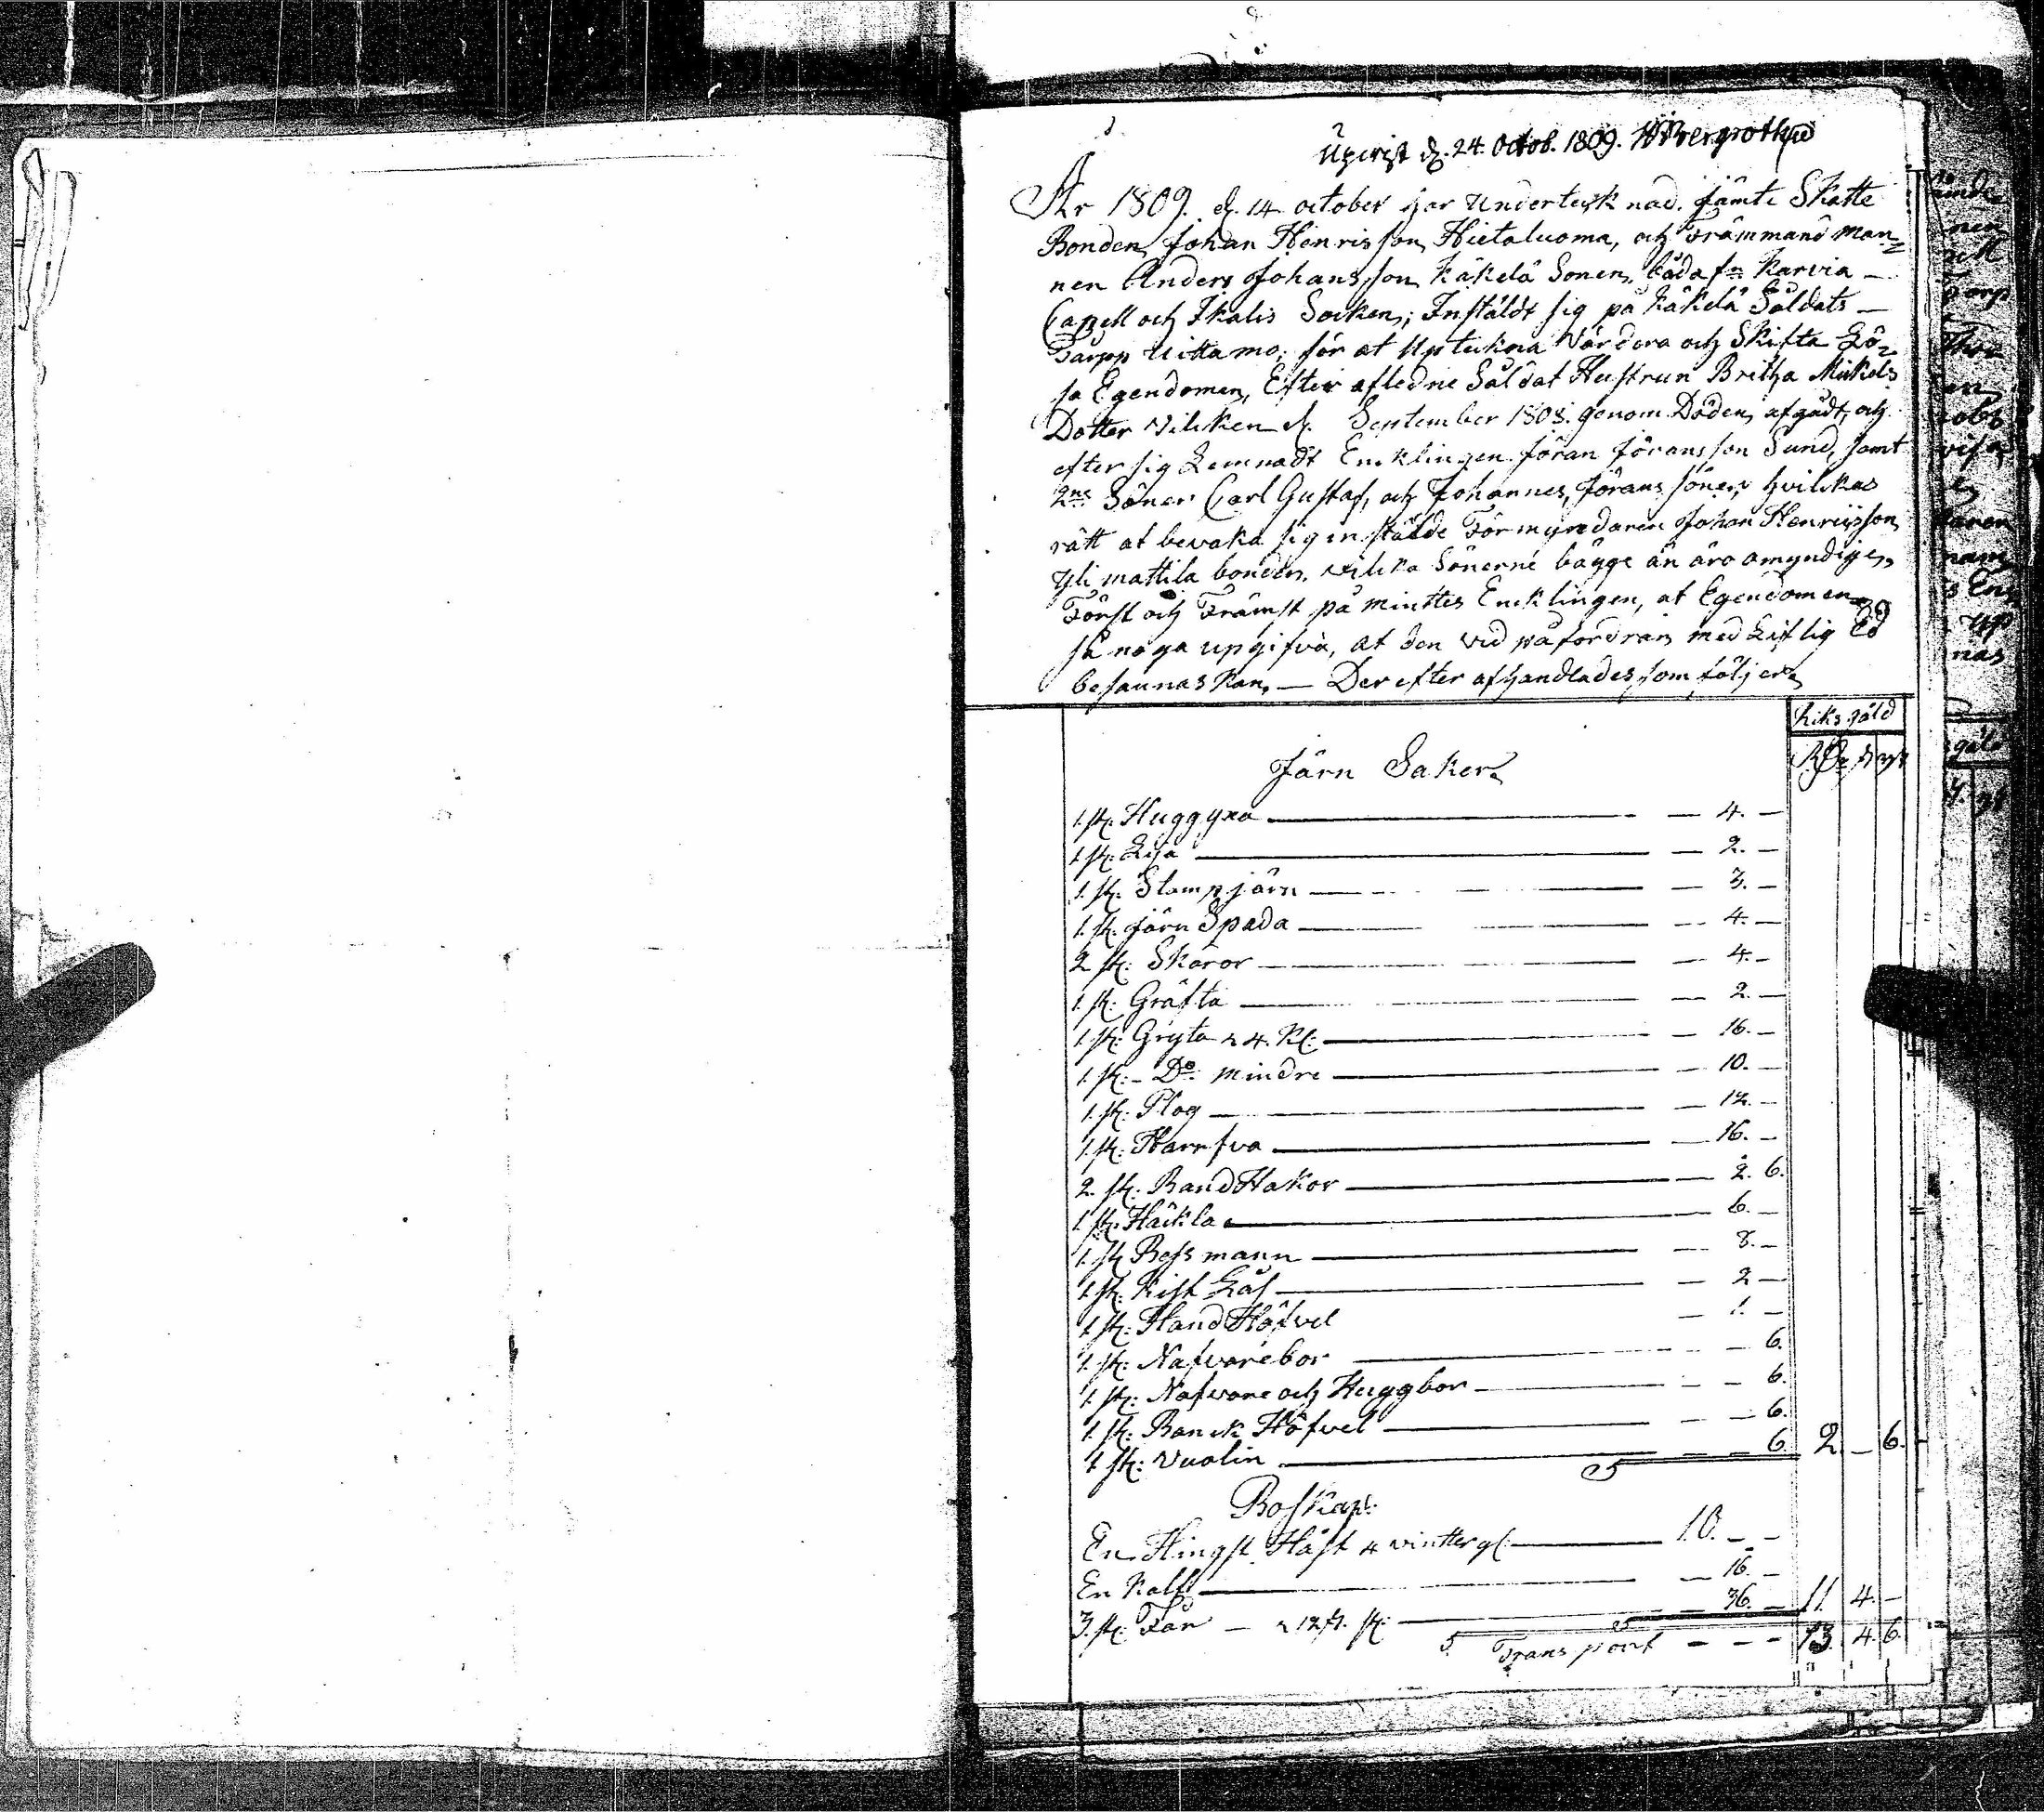 Upvist d. 24. Octob. 1809.
År 1809. d. 14 october har Undertecknad. jämte Skatte
Bonden Johan Henrisson Hietaluoma, och Främmand man=
nen Anders Johansson Käkelä Sonen, båda fn Karvia —
Capell och Ikalis Socken; Instäldt sig på Käkelä Såldats —
Tarpp Uittamo; för at Upteckna Värdera och Skifta Lö=
sa Egendomen, Efter afledne Såldat Hustrun Britha Mickels
Dotter vilcken d. September 1808. genom Döden afgådt, och
efter sig Lemnadt Encklingen Jöran Jöransson Sund, samt
2ne Söner Carl Gustaf, och Johannes, Jörans söner, hvilckas
rätt at bevaka sig instälde Förmyndaren Johan Henricsson
Yli mattila bonden. vilcka Sönerne bägge än äro omyndige,
Först och Främst på mintes Encklingen, at Egendomen
så noga upgifva, at den vid påfordran med Liflig Ed
besannas kan, — Der efter afhandlades som följer,
Riks gäld
Järn Saker
1. st. Huggyxa — 4. —
1 st. Lya — 2. —
1. st. Stamp järn — 3. —
1. st. järn Spada — 4. —
2 st. Skäror — 4. —
1. st. Gräfta — 2. —
1. st. Gryta a 4. K: — 16. —
1. st. — Do: mindre — 10. —
1. st. Plog — 12. —
1. st. Harrfva — 16. —
2. st. Band Hakor — 2. 6.
1 st. Häckla — 6. —
1. st Bessmann — 8. —
1. st. Kist Lås — 2 —
1. st. Hand Höfvel — 1. —
1. st. Nafvare bor — — 6.
1. st. Nafvare och Huggbor — — 6.
1. st. Banck Höfvel — — 6.
1 st. Vuolin — — 6. 2 — 6.
Boskap:
En Hingst Häst 4 vintter gl. — 10. — —
En Kalf — 16. —
3. st. Får — a 12 s. st. — 36. — 11 4. —
Transport — — — 13. 4. 6.